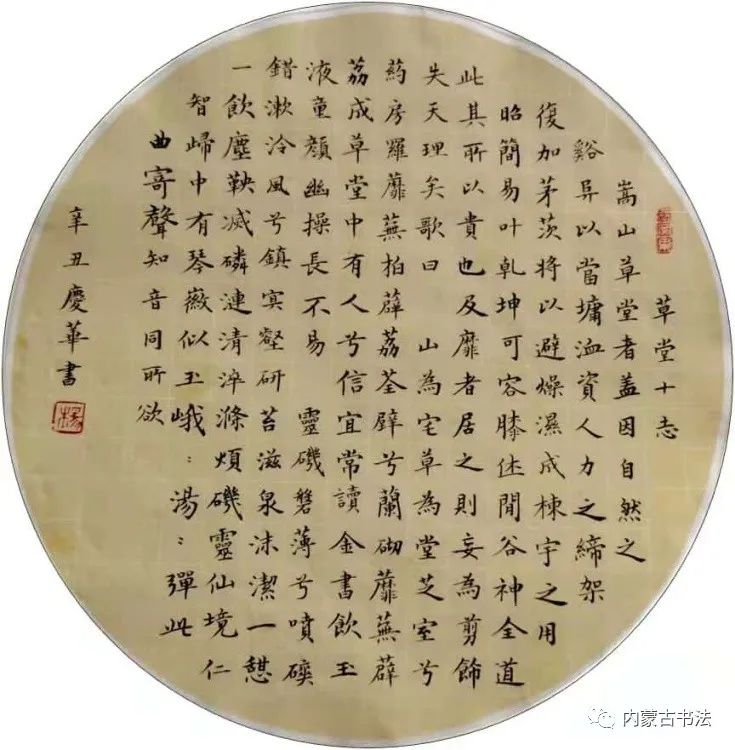 草堂十志
嵩山草堂者盖因自然之
谿异以當墉洫資人力之締架
復加茅茨將以避燥濕成棟宇之用
昭簡易叶乾坤可容膝休閒谷神全道
此其所以貴也及靡者居之則妄為剪飾
失天理矣歌曰 山為宅草為堂芝室兮
葯房羅蘼蕪拍薜荔荃壁兮蘭砌蘼蕪薜
荔成草堂中有人兮信宜常讀金書飲玉
液童顏幽操長不易 靈磯磐薄兮噴磢
錯漱泠風兮鎮冥壑研苔滋泉沫潔一憇
一飲塵鞅滅磷漣清淬滌煩磯靈仙境仁
智歸中有琴徽似玉峨：湯：彈此
曲寄聲知音同所欲
辛丑慶華書
楊
内蒙古书法